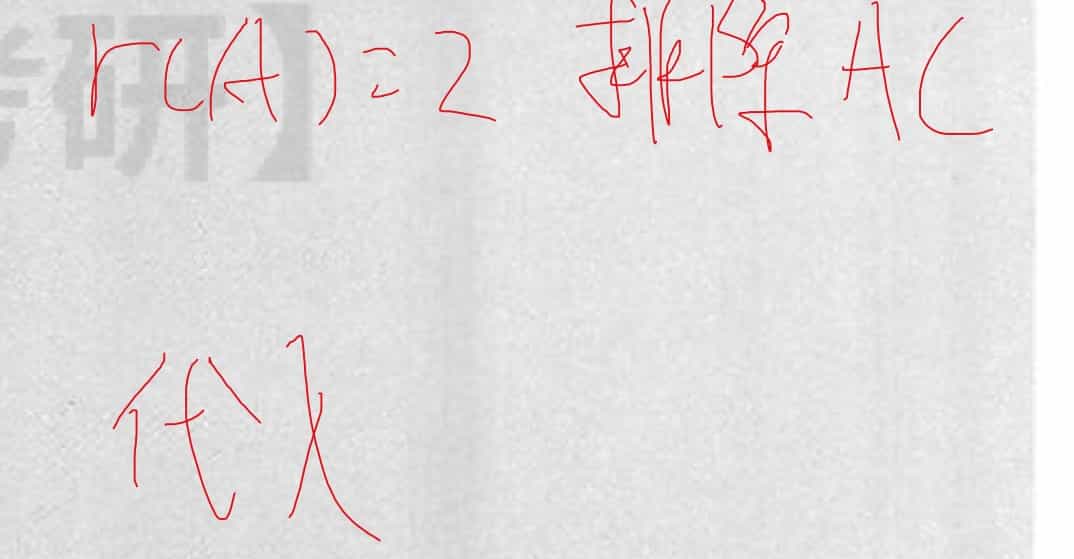 考研】
r(A)=2 排除 AC
代入